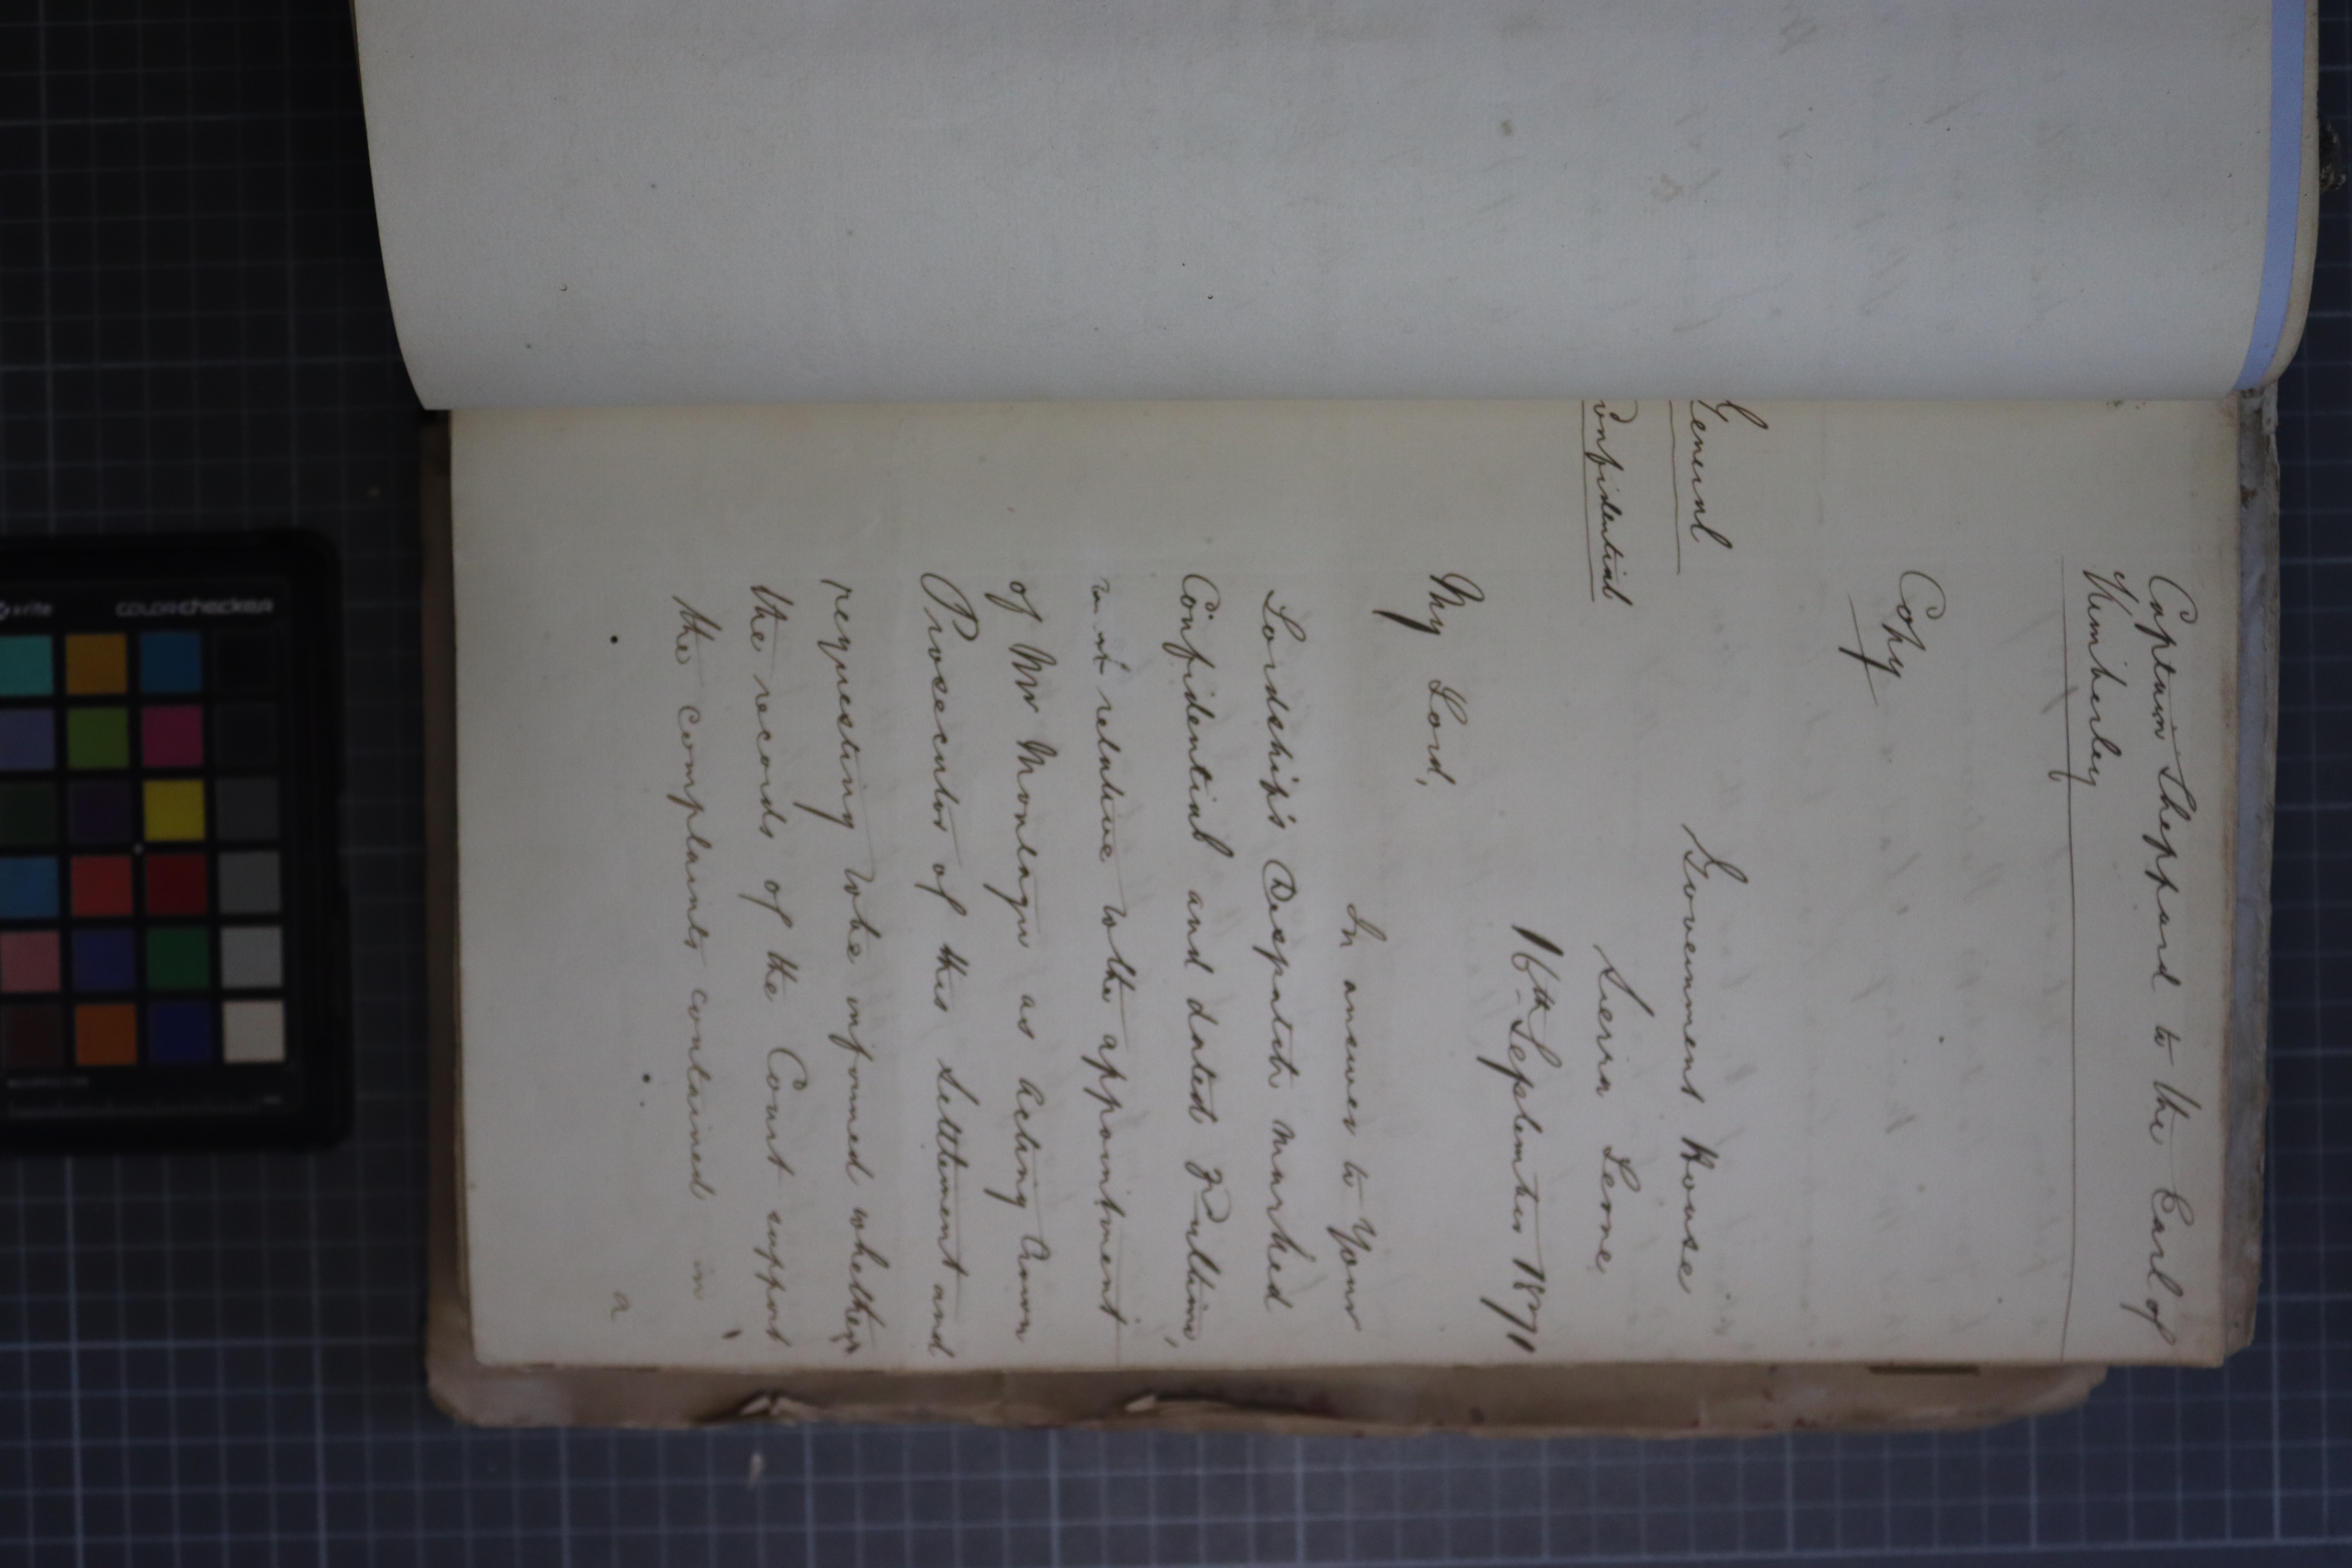 Captain Sheppard to the Earl of
Kimberley
Copy
General
Confidential
Government House
Sierra Leone
16th September 1871
My Lord,
In answer to Your
Lordship's Despatch marked
Confidential and dated
relative to the appointment
of Mr Montagu as Acting Crown
Prosecutor of this Settlement and
requesting to be informed whether
the records of the Court support
the complaints contained in
a
x-rite colorchecker